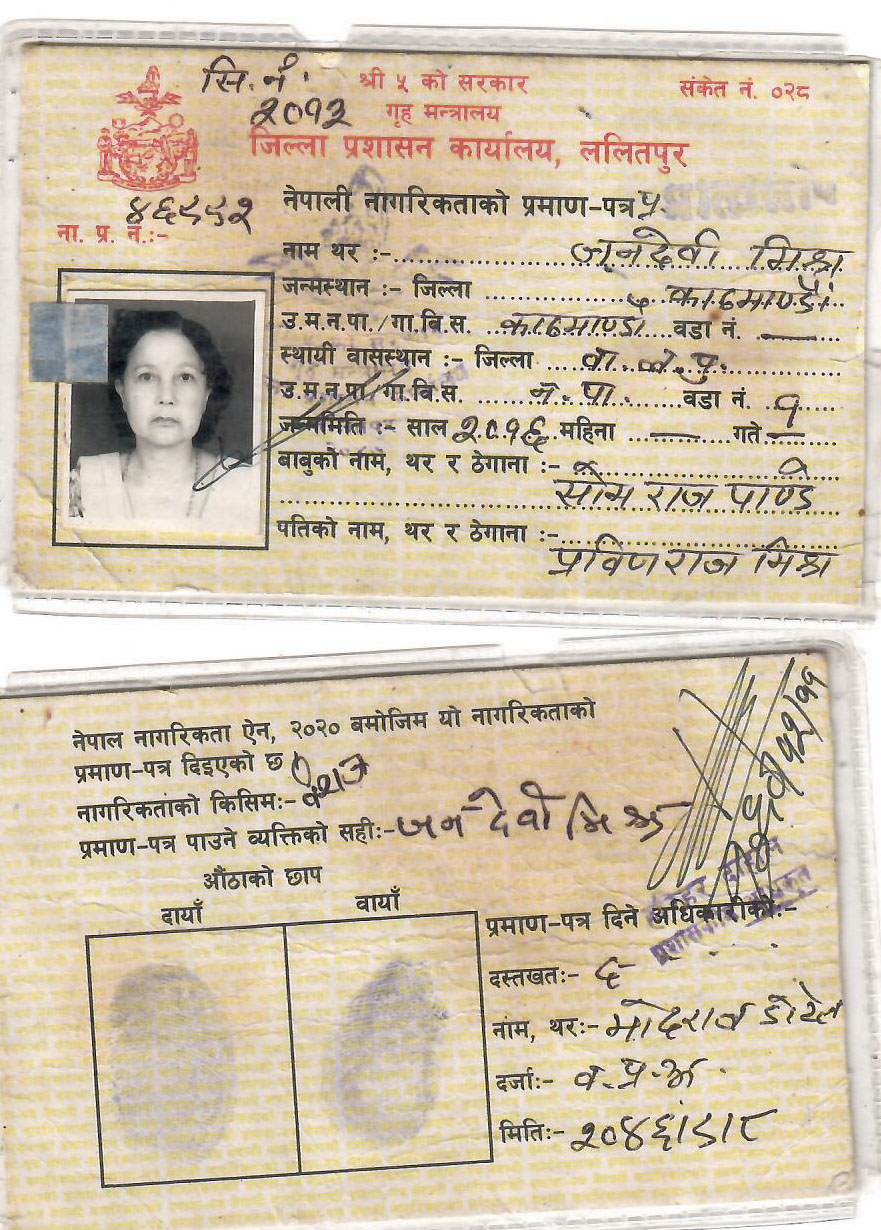 सि.नं. श्री ५ को सरकार संकेत नं. ०२८
२०१२ गृह मन्त्रालय
जिल्ला प्रशासन कार्यालय, ललितपुर
नेपाली नागरिकताको प्रमाण-पत्र
ना. प्र. नं.:-
नाम थर :- जूनदेवी मिश्र
जन्मस्थान :- जिल्ला काठमाण्डौं
उ.म.न.पा./गा.वि.स. काठमाण्डौ वडा नं. —
स्थायी वासस्थान :- जिल्ला पु.
उ.म.न.पा/गा.वि.स. न. पा. वडा नं. १
जन्ममिति :- साल २०१६ महिना — गते —
बाबुको नाम, थर र ठेगाना :-
सोम राज पाण्डे
पतिको नाम, थर र ठेगाना :-
प्रविणराज मिश्र
नेपाल नागरिकता ऐन, २०२० बमोजिम यो नागरिकताको
प्रमाण-पत्र दिइएको छ
नागरिकताको किसिम:- वंशज
प्रमाण-पत्र पाउने व्यक्तिको सही:- जुन देवी मिश्र
औंठाको छाप
दायाँ वायाँ
प्रमाण-पत्र दिने अधिकारीको:-
दस्तखत:- द
नाम, थर:- मोदराज डोटेल
दर्जा:- व.प्र.अ.
मिति:- २०४६।८।८